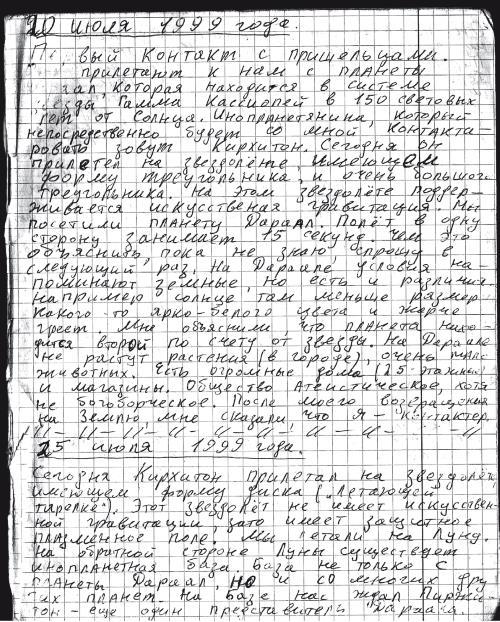 20 июля 1999 года.
вый контакт с пришельцами.
прилетают к нам с планеты
которая находится в системе
Гамма Кассиопей в 150 световых
лет от Солнца. Инопланетянина, который
непосредственно будет со мной контакти-
ровать зовут Кирхитон. Сегодня он
прилетел на звездолёте, имеющем
форму треугольника, и очень большого
треугольника. На этом звездолёте поддер-
живается искусственая гравитация. Мы
посетили планету Дараал. Полёт в одну
сторону занимает 15 секунд. Чем это
объяснить, пока не знаю, спрошу в
следующий раз. На Дараале условия на-
поминают земные, но есть и различия.
например солнце там меньше размер
какого-то ярко-белого цвета и жарче
греет. Мне объяснили, что планета нахо-
дится второй по счету от звезды. На Дараале
не растут растения (в городе), очень мало
животных. Есть огромные дома (25-этажные)
и магазины. Общество Атеистическое, хотя
не богоборческое. После моего возвращения
на Землю мне сказали, что я - контактер.
-//-//-//-//-//-//-//-//-//-//
25 июля 1999 года.
Сегодня Кирхитон прилетал на звездолёте,
имеющем форму диска („Летающей
тарелке"). Этот звездолёт не имеет искусствен-
ной гравитации зато имеет защитное
плазменное поле. Мы летали на Луну.
На обратной стороне Луны существует
инопланетная база. База не только с
планеты Дараал, но и со многих дру
гих планет. На базе нас ждал Пиржи-
тон - еще один представитель Дараала.